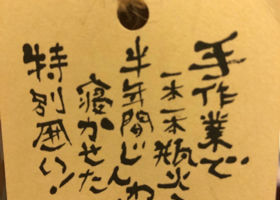 手作業で
一本一本瓶火
半年間じんわ
寝かせた
特別囲い!